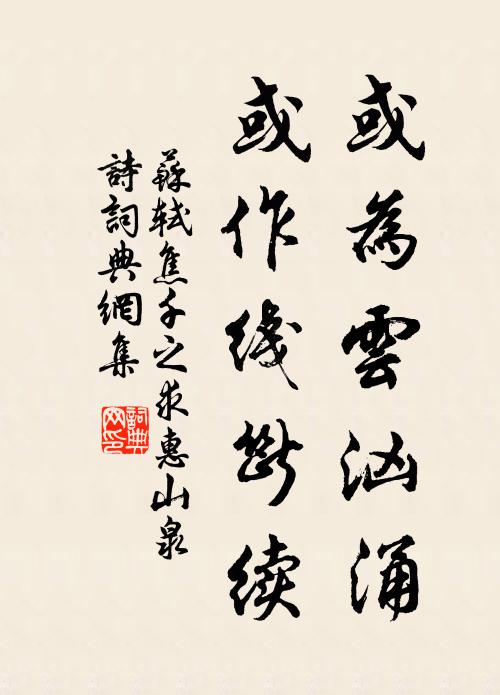 或為雲洶涌
或作綫斷續
蘇軾焦千之求惠山泉
詩詞典網集
詞典網印